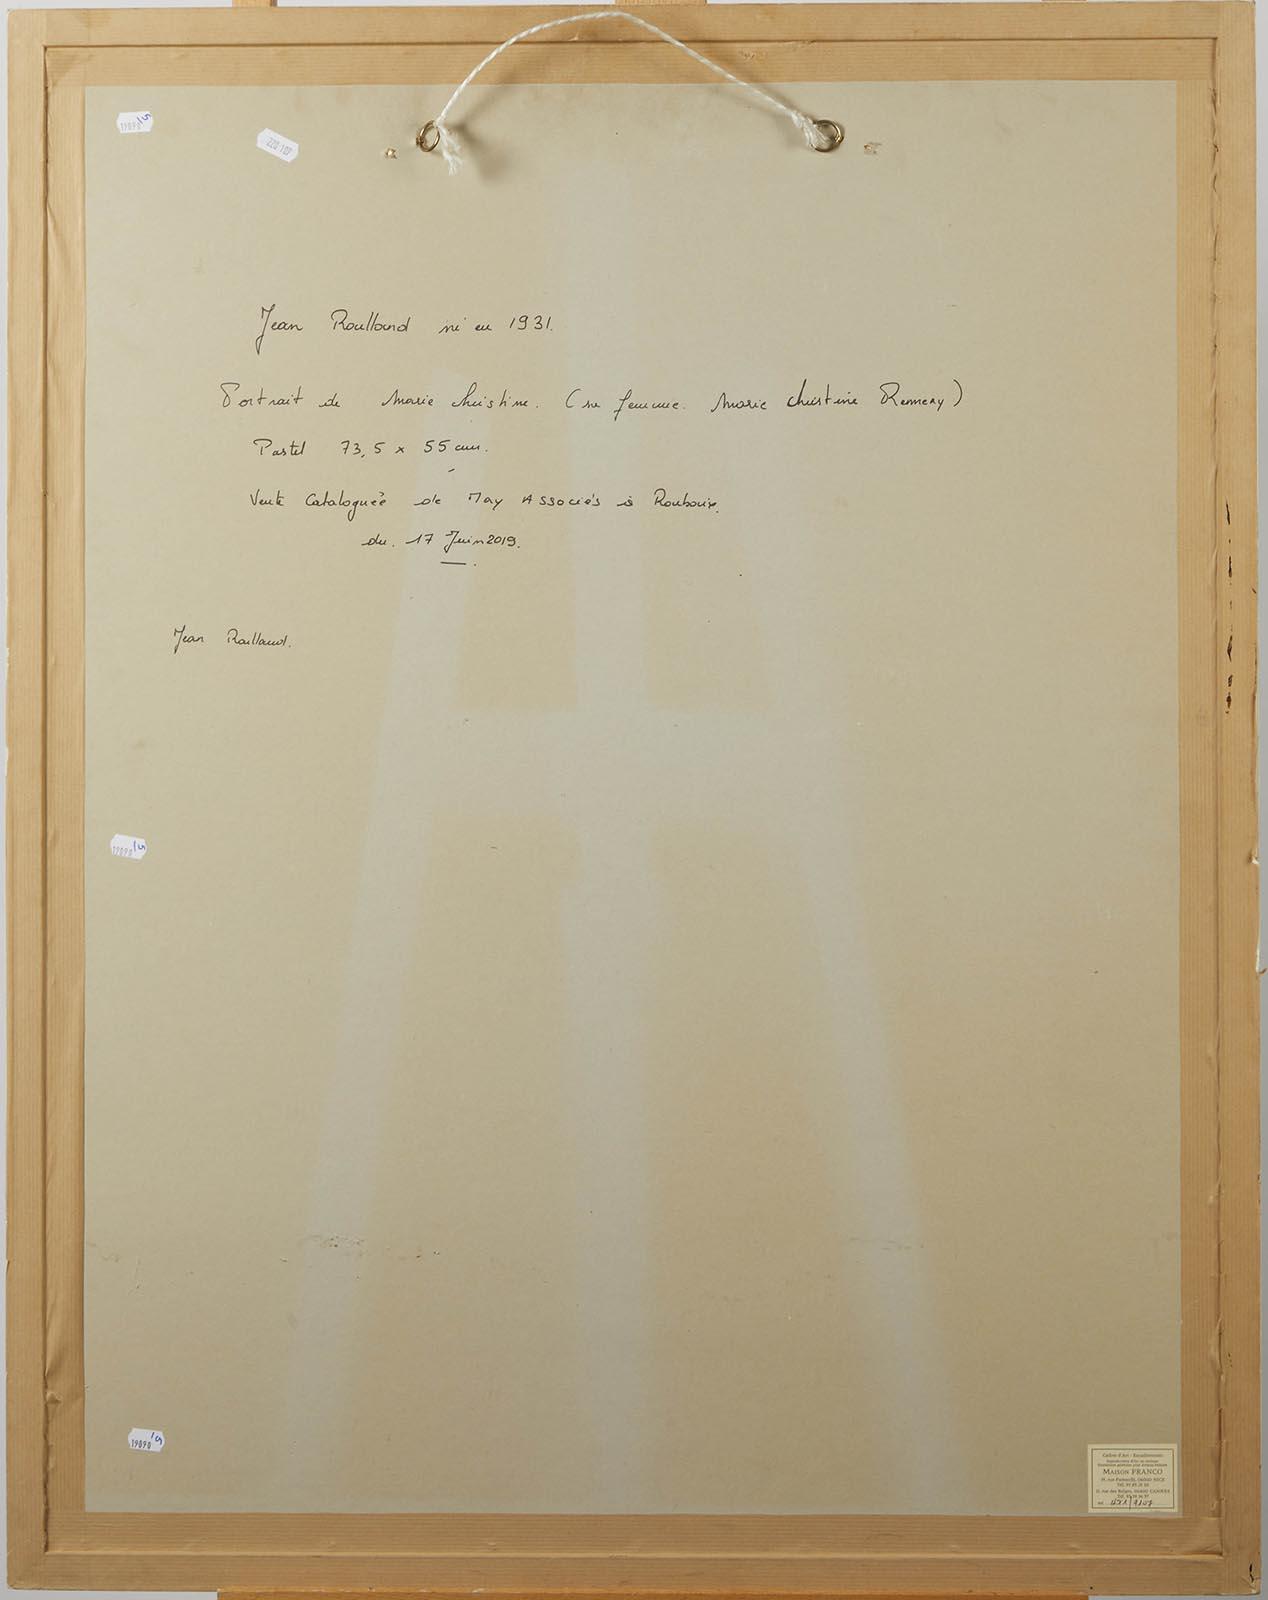 19090/5
220 107
Jean Roulland né en 1931.
Portrait de Marie Christine. (sa femme. Marie Christine Remmery)
Pastel 73,5 x 55 cm.
Vente Cataloguée de May Associés à Roubaix.
du. 17 Juin 2019.
Jean Roulland.
19090/5
19090/5
MAISON FRANCO